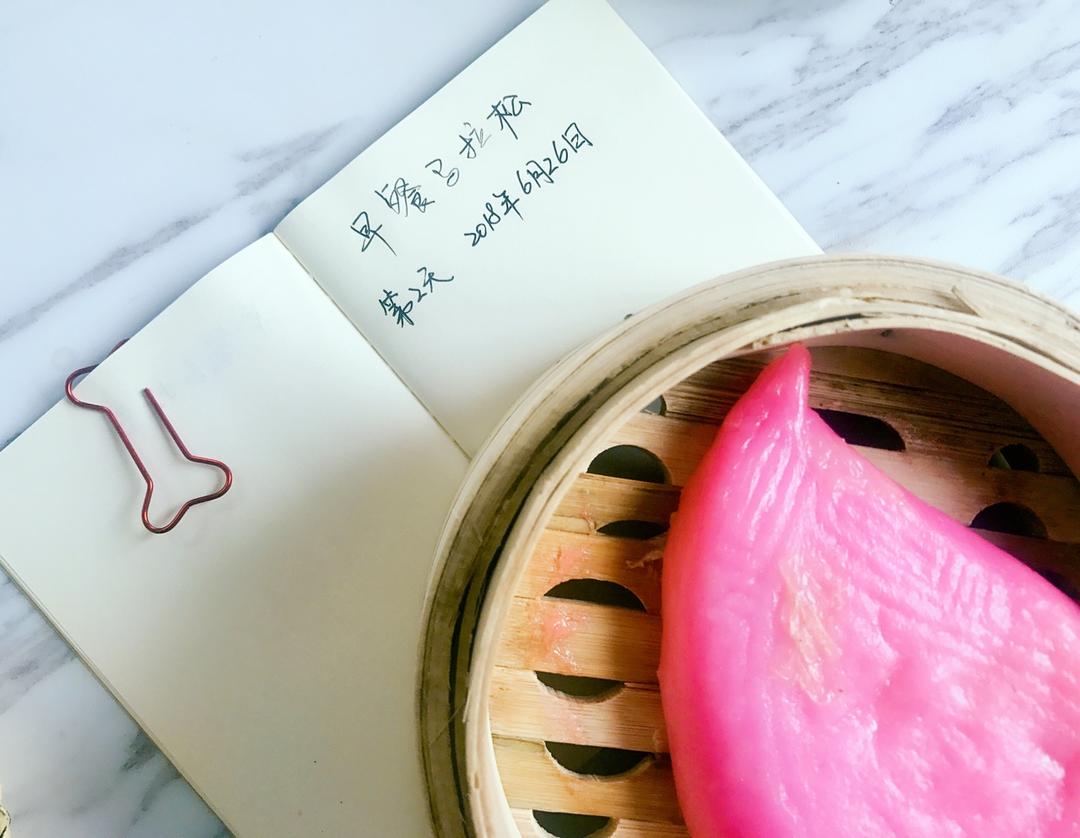 早餐马拉松
第2天 2018年6月26日